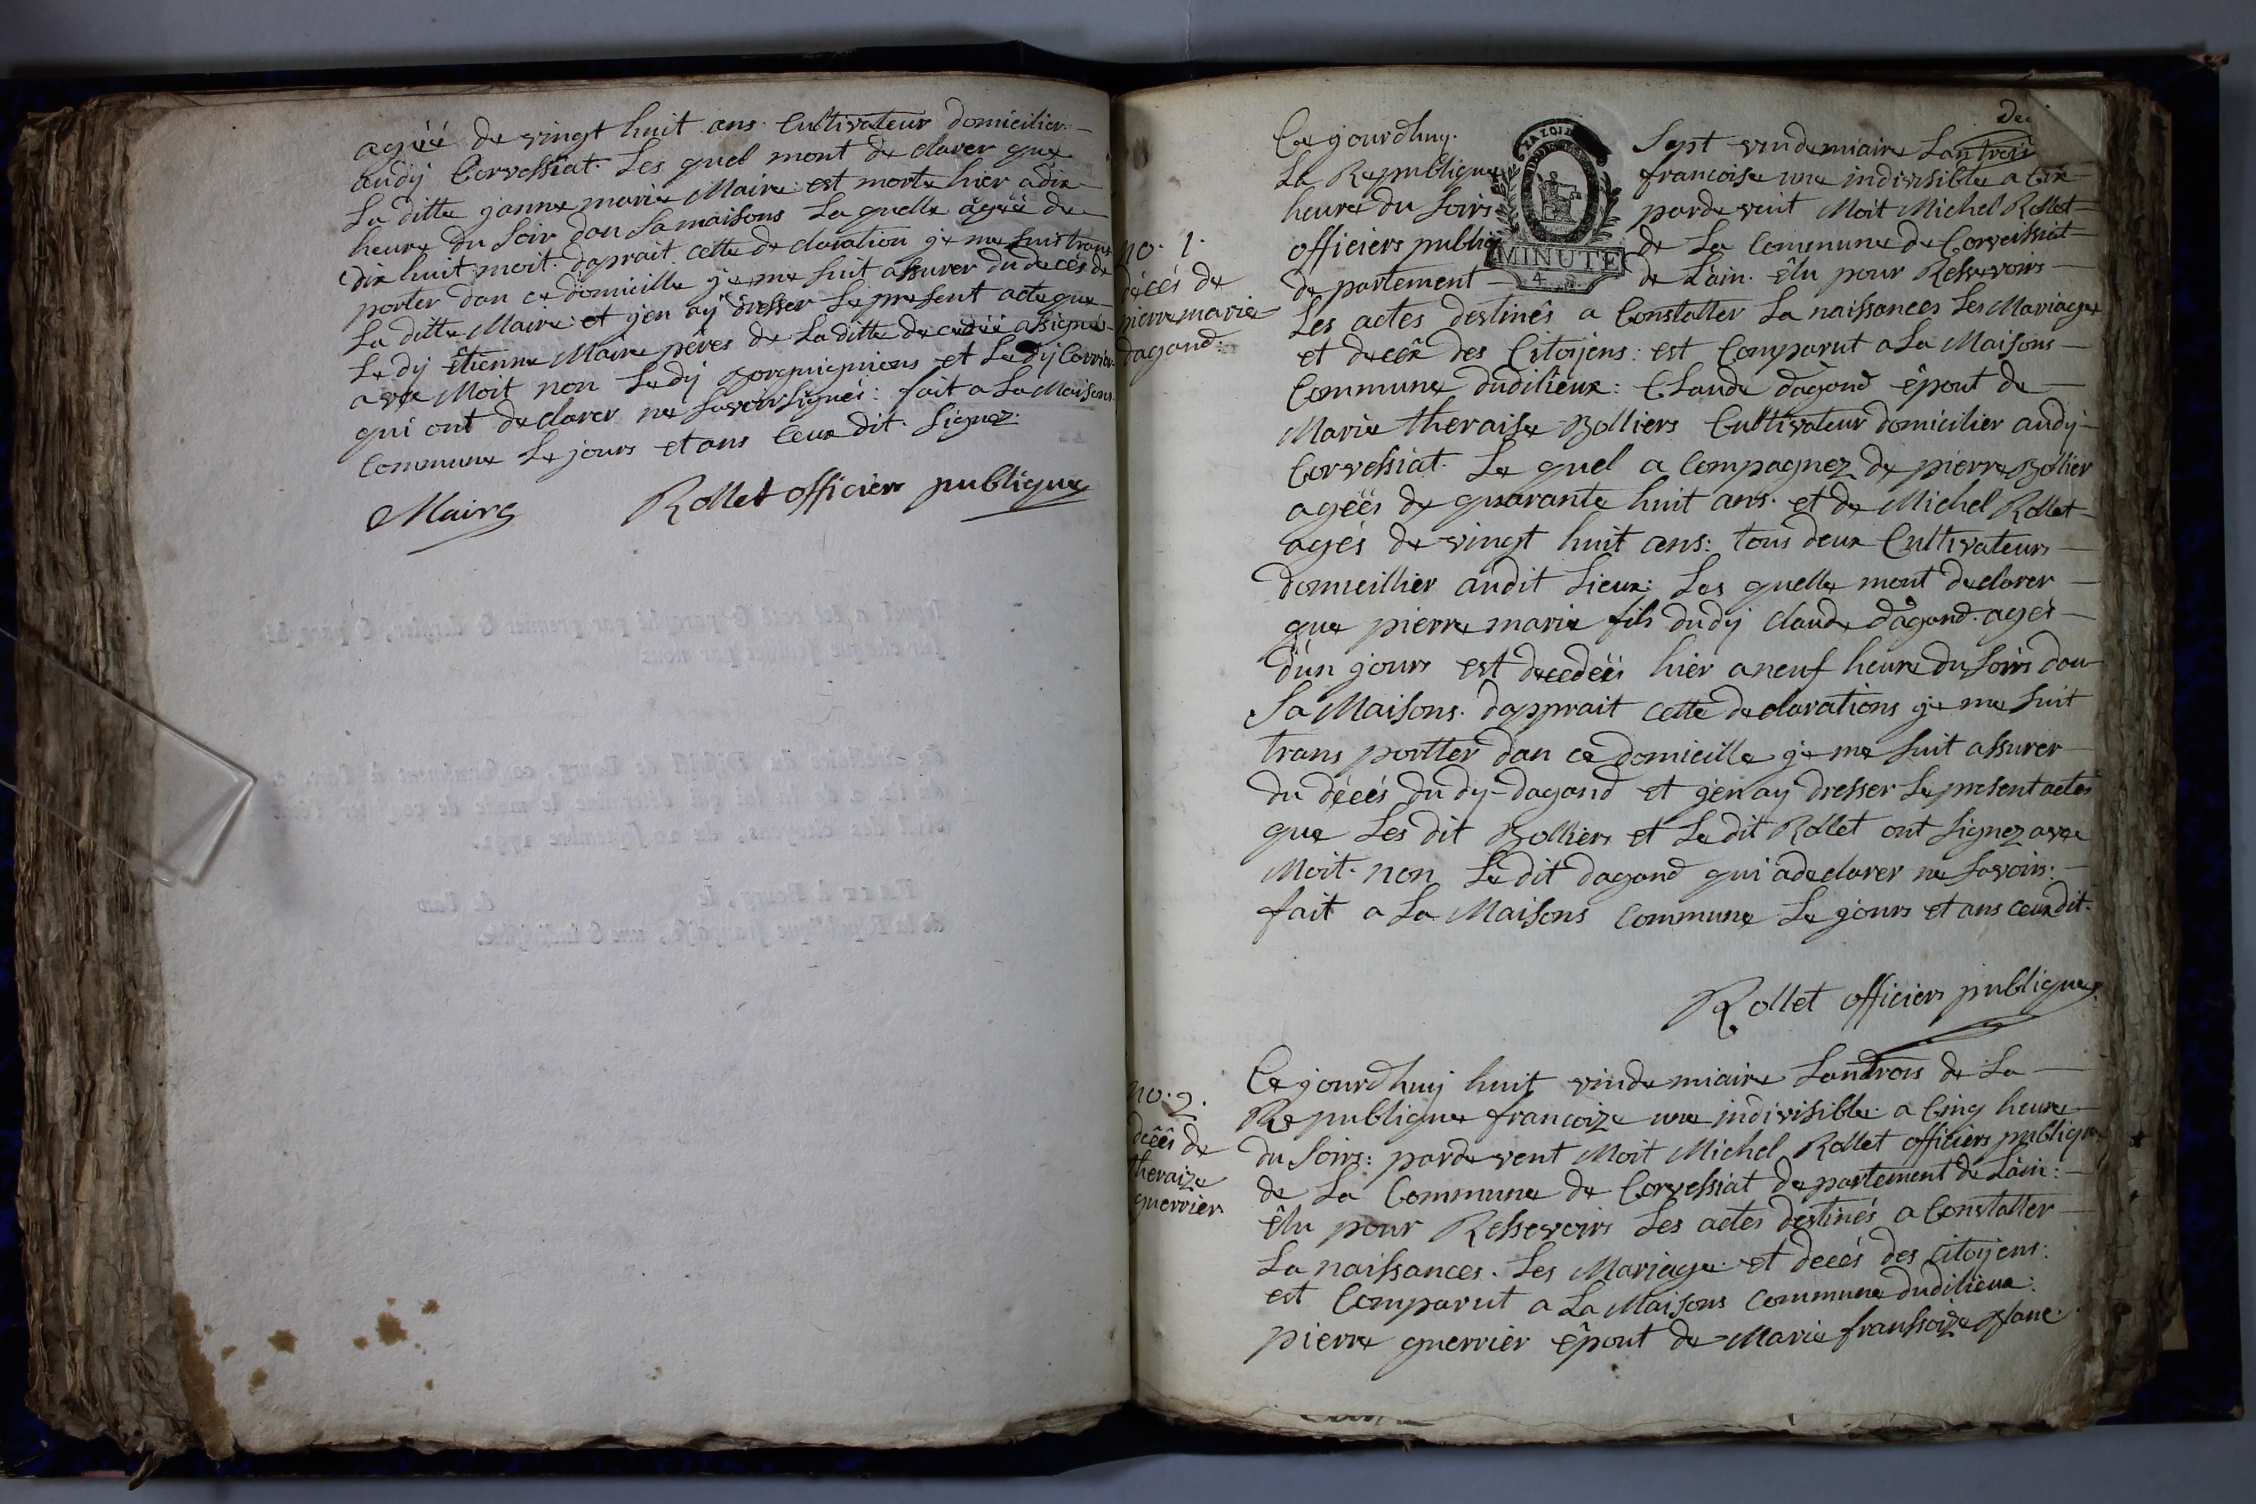 agéé de vingt huit ans. Cultivateur domicilier
audij Corvessiat. Les quel mont declarer que
La ditte janne marie Maire est morte hier adix
heure du Soir dan Samaisons Laquelle ageé de
dix huit moit. daprait cette declaration je me suis trans
porter dan ce domicille je me suit assurer du deces de
La ditte Maire et jen aÿ dresser Le present acte que
Le dij êtienne Maire pêres de La ditte decedéé a signé
avec Moit non Ledij et Ledij
qui ont declarer ne savoir signéi: fait a La Maisons
Commune Le jours et ans Ceux dit. Signez.
Maire Rollet officiers publique
No. 1.
décés de
pierre marie
dagand.
Ce jourdhuy. Sept vindemiaire Lantrois
La Republique francoise une indivisible a Six
heure du Soirs pardevent Moit Michel Rollet
officiers public de La Commune de Corvessiat
departement de L'ain. êlu pour Ressevoirs
MINUTE
Les actes destinês a Constatter La naissances Les Mariage
et decêx des Citoÿens: est Comparut a La Maisons
Commune dudilieux: Claude dagand êpout de
Marie theraise Bolliers Cultivateur domicilier audij
Corvessiat. Le quel a Compagnez de pierre Bollier
agéés de quarante huit ans. et de Michel Rollet
agés de vingt huit ans: tous deux Cultivateurs
domicillier audit Lieux: Les quelle mont declarer
que pierre marie fils dudij claude dagand. agés
d'un jours est decedéés hier a neuf heure du Soirs dan
Sa Maisons. dapprait cette declarations je me suit
trans portter dan ce domicille je me suit assurer
du décés dudy dagand et jen ay dresser Le present actes
que Les dit Bolliers et Le dit Rollet ont signez avec
Moit. non Le dit dagand qui a declarer ne Savoirs.
fait a La Maisons Commune Le jours et ans ceux dit.
Rollet officiers publique
No. 2.
décês de
theraize
guerrier
Ce jourdhuij huit vindemiaire Lantrois de La
Republique francoize une indivisible a Cinq heure
du Soirs: pardevent Moit Michel Rollet officiers publique
de La Commune de Corvessiat departement de L'ain:
êlu pour Ressevoirs Les actes destinés a Constatter
La naissances. Les Mariage et decés des Citoÿens:
est Comparut a La Maisons Commune dudilieux:
pierre guerrier êpout de Marie franssoize